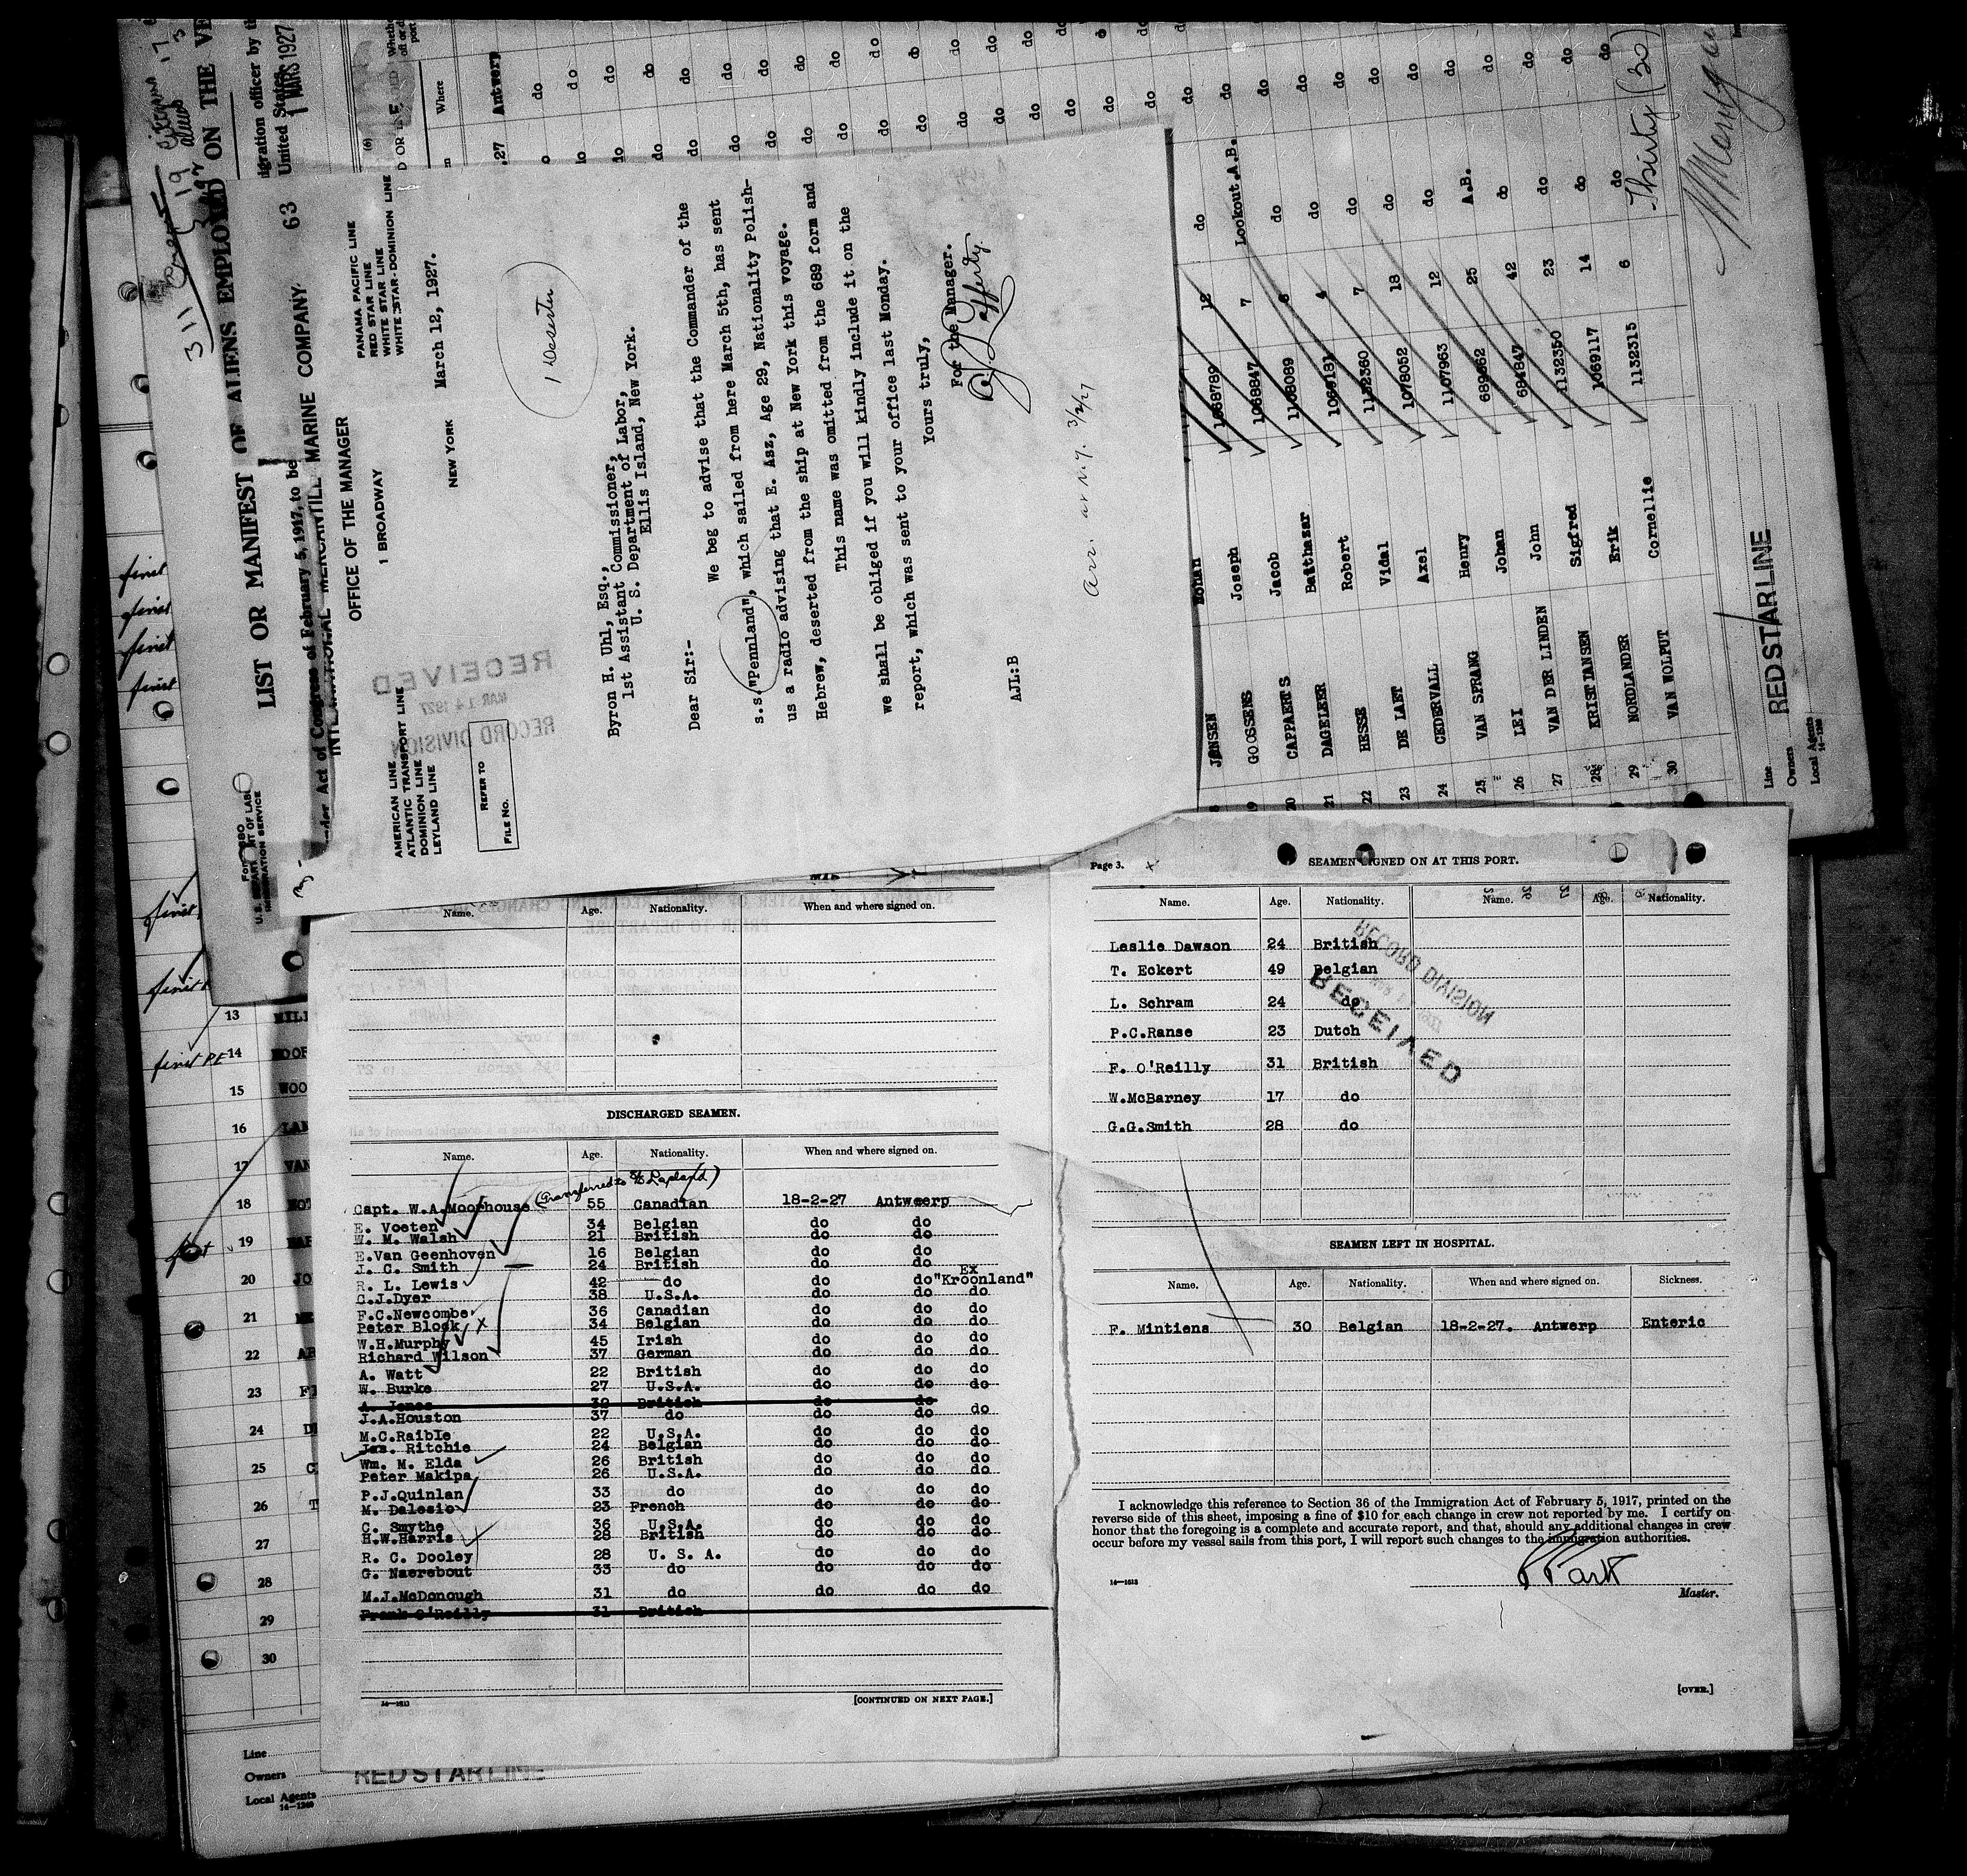 LIST OR MANIFEST OF ALIENS EMPLOYED ON THE VE
Act of Congress of February 5, 1917, to be
igration officer by th
United States
1 MARS 1927
INTERNATIONAL MERCANTILE MARINE COMPANY 63
OFFICE OF THE MANAGER
1 BROADWAY
AMERICAN LINE
ATLANTIC TRANSPORT LINE
DOMINION LINE
LEYLAND LINE
PANAMA PACIFIC LINE
RED STAR LINE
WHITE STAR LINE
WHITE STAR-DOMINION LINE
NEW YORK March 12, 1927.
REFER TO
FILE No.
RECEIVED
MAR 14 1927
RECORD DIVISION
1 Deserter
Byron H. Uhl, Esq.,
1st Assistant Commissioner,
U. S. Department of Labor,
Ellis Island, New York.
Dear Sir:-
We beg to advise that the Commander of the
s.s."Pennland", which sailed from here March 5th, has sent
us a radio advising that E. Asz, Age 29, Nationality Polish-
Hebrew, deserted from the ship at New York this voyage.
This name was omitted from the 689 form and
we shall be obliged if you will kindly include it on the
report, which was sent to your office last Monday.
Yours truly,
For the Manager.
AJL:B
arr. at N.Y. 3/2/27
Where
.27 Antwerp
JØNSEN Johan 1068789 12 do
19 GOOSSENS Joseph 1068847 7 Lookout A.B.
20 CAPPAERTS Jacob 1108089 6 do
21 DAGELER Balthasar 1069181 4 do
22 HESSE Robert 1132360 7 do
23 DE LAET Vidal 1078052 18 do
24 CEDERVALL Axel 1107963 12 do
25 VAN SPRANG Henry 689662 25 A.B.
26 LEI Johan 684847 42 do
27 VAN DER LINDEN John 1132350 23 do
28 KRISTIANSEN Sigfred 1069117 14 do
29 NORDLANDER Erik 1132315 6 do
30 VAN WOLPUT Cornellie
Thirty (30)
Line
Owners RED STAR LINE
Local Agents
14-1240
Name. Age. Nationality. When and where signed on.
DISCHARGED SEAMEN.
Name. Age. Nationality. When and where signed on.
(Transferred to S/S Lapland)
Capt. W.A.Moorhouse 55 Canadian 18-2-27 Antwerp
E. Voeten 34 Belgian do do
W. M. Walsh 21 British do do
E.Van Geenhoven 16 Belgian do do
J. C. Smith 24 British do do
R. L. Lewis 42 do do do Ex "Kroonland"
C.J.Dyer 38 U.S.A. do do do
F.C.Newcombe 36 Canadian do do do
Peter Block 34 Belgian do do do
W.H.Murphy 45 Irish do do do
Richard Wilson 37 German do do do
A. Watt 22 British do do do
W. Burke 27 U.S.A. do do do
A. Jones 32 British do do
J.A.Houston 37 do do do do
M.C.Raible 22 U.S.A. do do do
Jas. Ritchie 24 Belgian do do do
Wm. M. Elda 26 British do do do
Peter Makipa 26 U.S.A. do do do
P.J.Quinlan 33 do do do do
M. Dalesio 23 French do do do
C. Smythe 36 U.S.A. do do do
H.W.Harris 28 British do do do
R. C. Dooley 28 U. S. A. do do do
G. Naerebout 33 do do do do
M.J.McDonough 31 do do do do
Frank O'Reilly 31 British
[CONTINUED ON NEXT PAGE.]
Page 3.
SEAMEN SIGNED ON AT THIS PORT.
Name. Age. Nationality. Name. Age. Nationality.
Leslie Dawson 24 British
T. Eckert 49 Belgian
L. Schram 24 do
P.C.Ranse 23 Dutch
F. O'Reilly 31 British
W.McBarney 17 do
G.G.Smith 28 do
RECORD DIVISION
RECEIVED
SEAMEN LEFT IN HOSPITAL.
Name. Age. Nationality. When and where signed on. Sickness.
F. Mintiens 30 Belgian 18-2-27. Antwerp Enteric
I acknowledge this reference to Section 36 of the Immigration Act of February 5, 1917, printed on the
reverse side of this sheet, imposing a fine of $10 for each change in crew not reported by me. I certify on
honor that the foregoing is a complete and accurate report, and that, should any additional changes in crew
occur before my vessel sails from this port, I will report such changes to the immigration authorities.
14-1613
Master.
[OVER.]
13
14
15
16
17
18
19
20
21
22
23
24
25
26
27
28
29
30
Line
Owners RED STAR LINE
Local Agents
14-1240